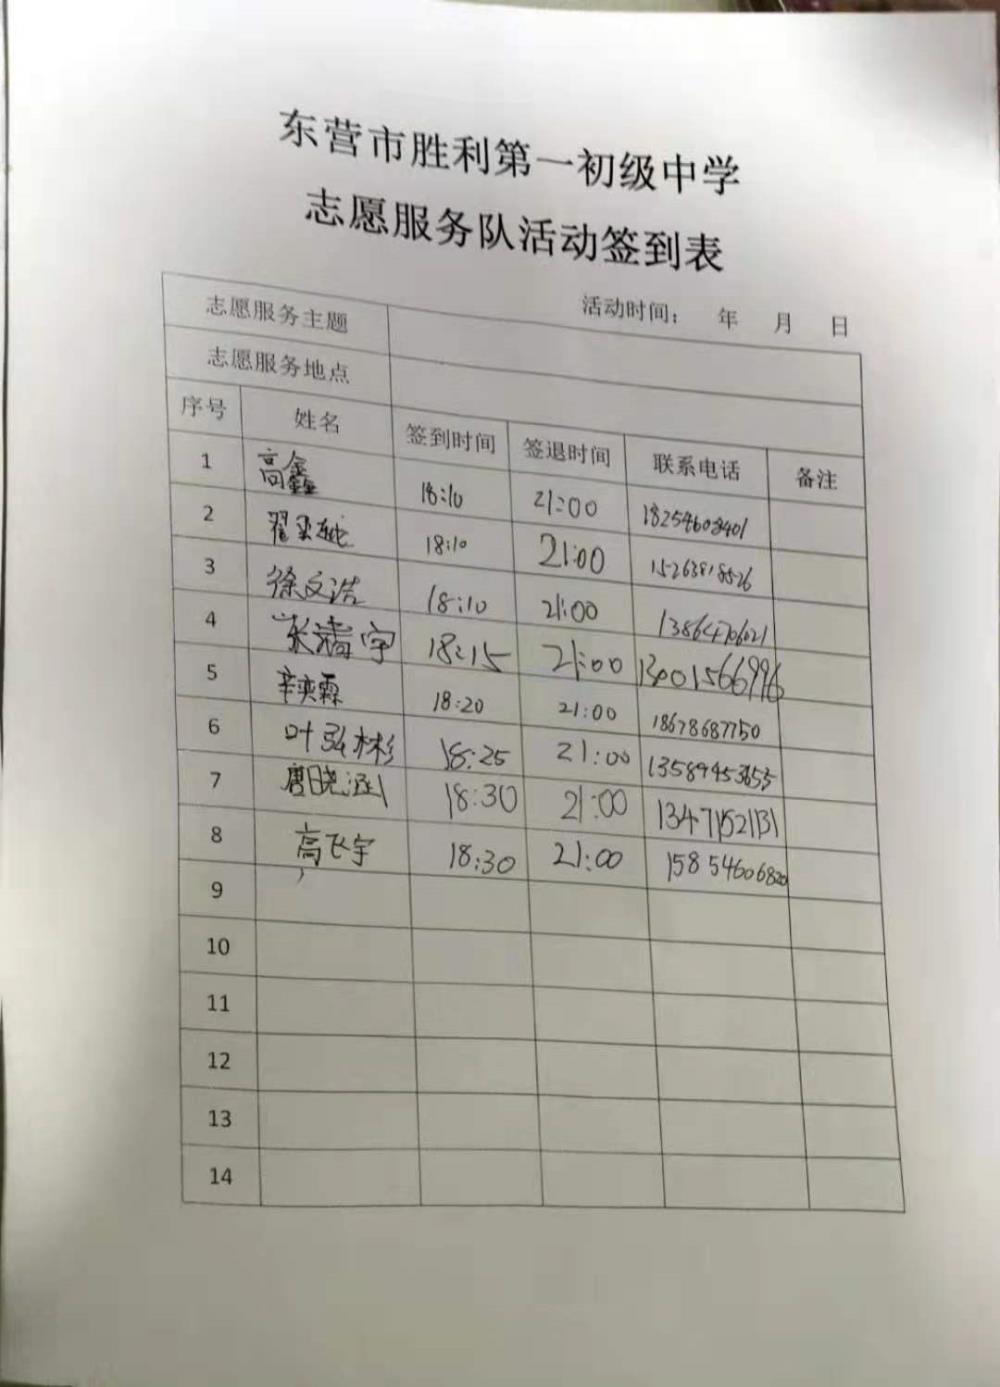 东营市胜利第一初级中学
志愿服务队活动签到表
活动时间： 年 月 日
志愿服务主题
志愿服务地点
序号 姓名 签到时间 签退时间 联系电话 备注
1 高鑫 18:10 21:00
2 翟 18:10 21:00 15263818526
3 徐文浩 18:10 21:00 13864706021
4 张清宇 18:15 21:00 13001566996
5 辛奕霖 18:20 21:00 18678687750
6 叶弘彬 18:25 21:00 13589453655
7 唐晓涵 18:30 21:00 13471521131
8 高飞宇 18:30 21:00 15854606820
9
10
11
12
13
14